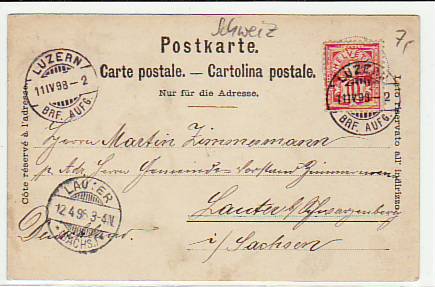 Schweiz
7,-
Postkarte.
Carte postale. — Cartolina postale.
Nur für die Adresse.
LUZERN
11 IV 98 - 2
BRF. AUFG.
HELVETIA
10
LUZERN
11 IV 98 - 2
BRF. AUFG.
Côte réservé à l'adresse.
Lato riservato all'indirizzo.
Herrn Martin Zimmermann
p. Adr. Herrn Gemeinde-Vorstand Zimmermann
Lauter b/Schwarzenberg
i/Sachsen
LAUTER
12.4.98.3-4N.
(SACHS.)